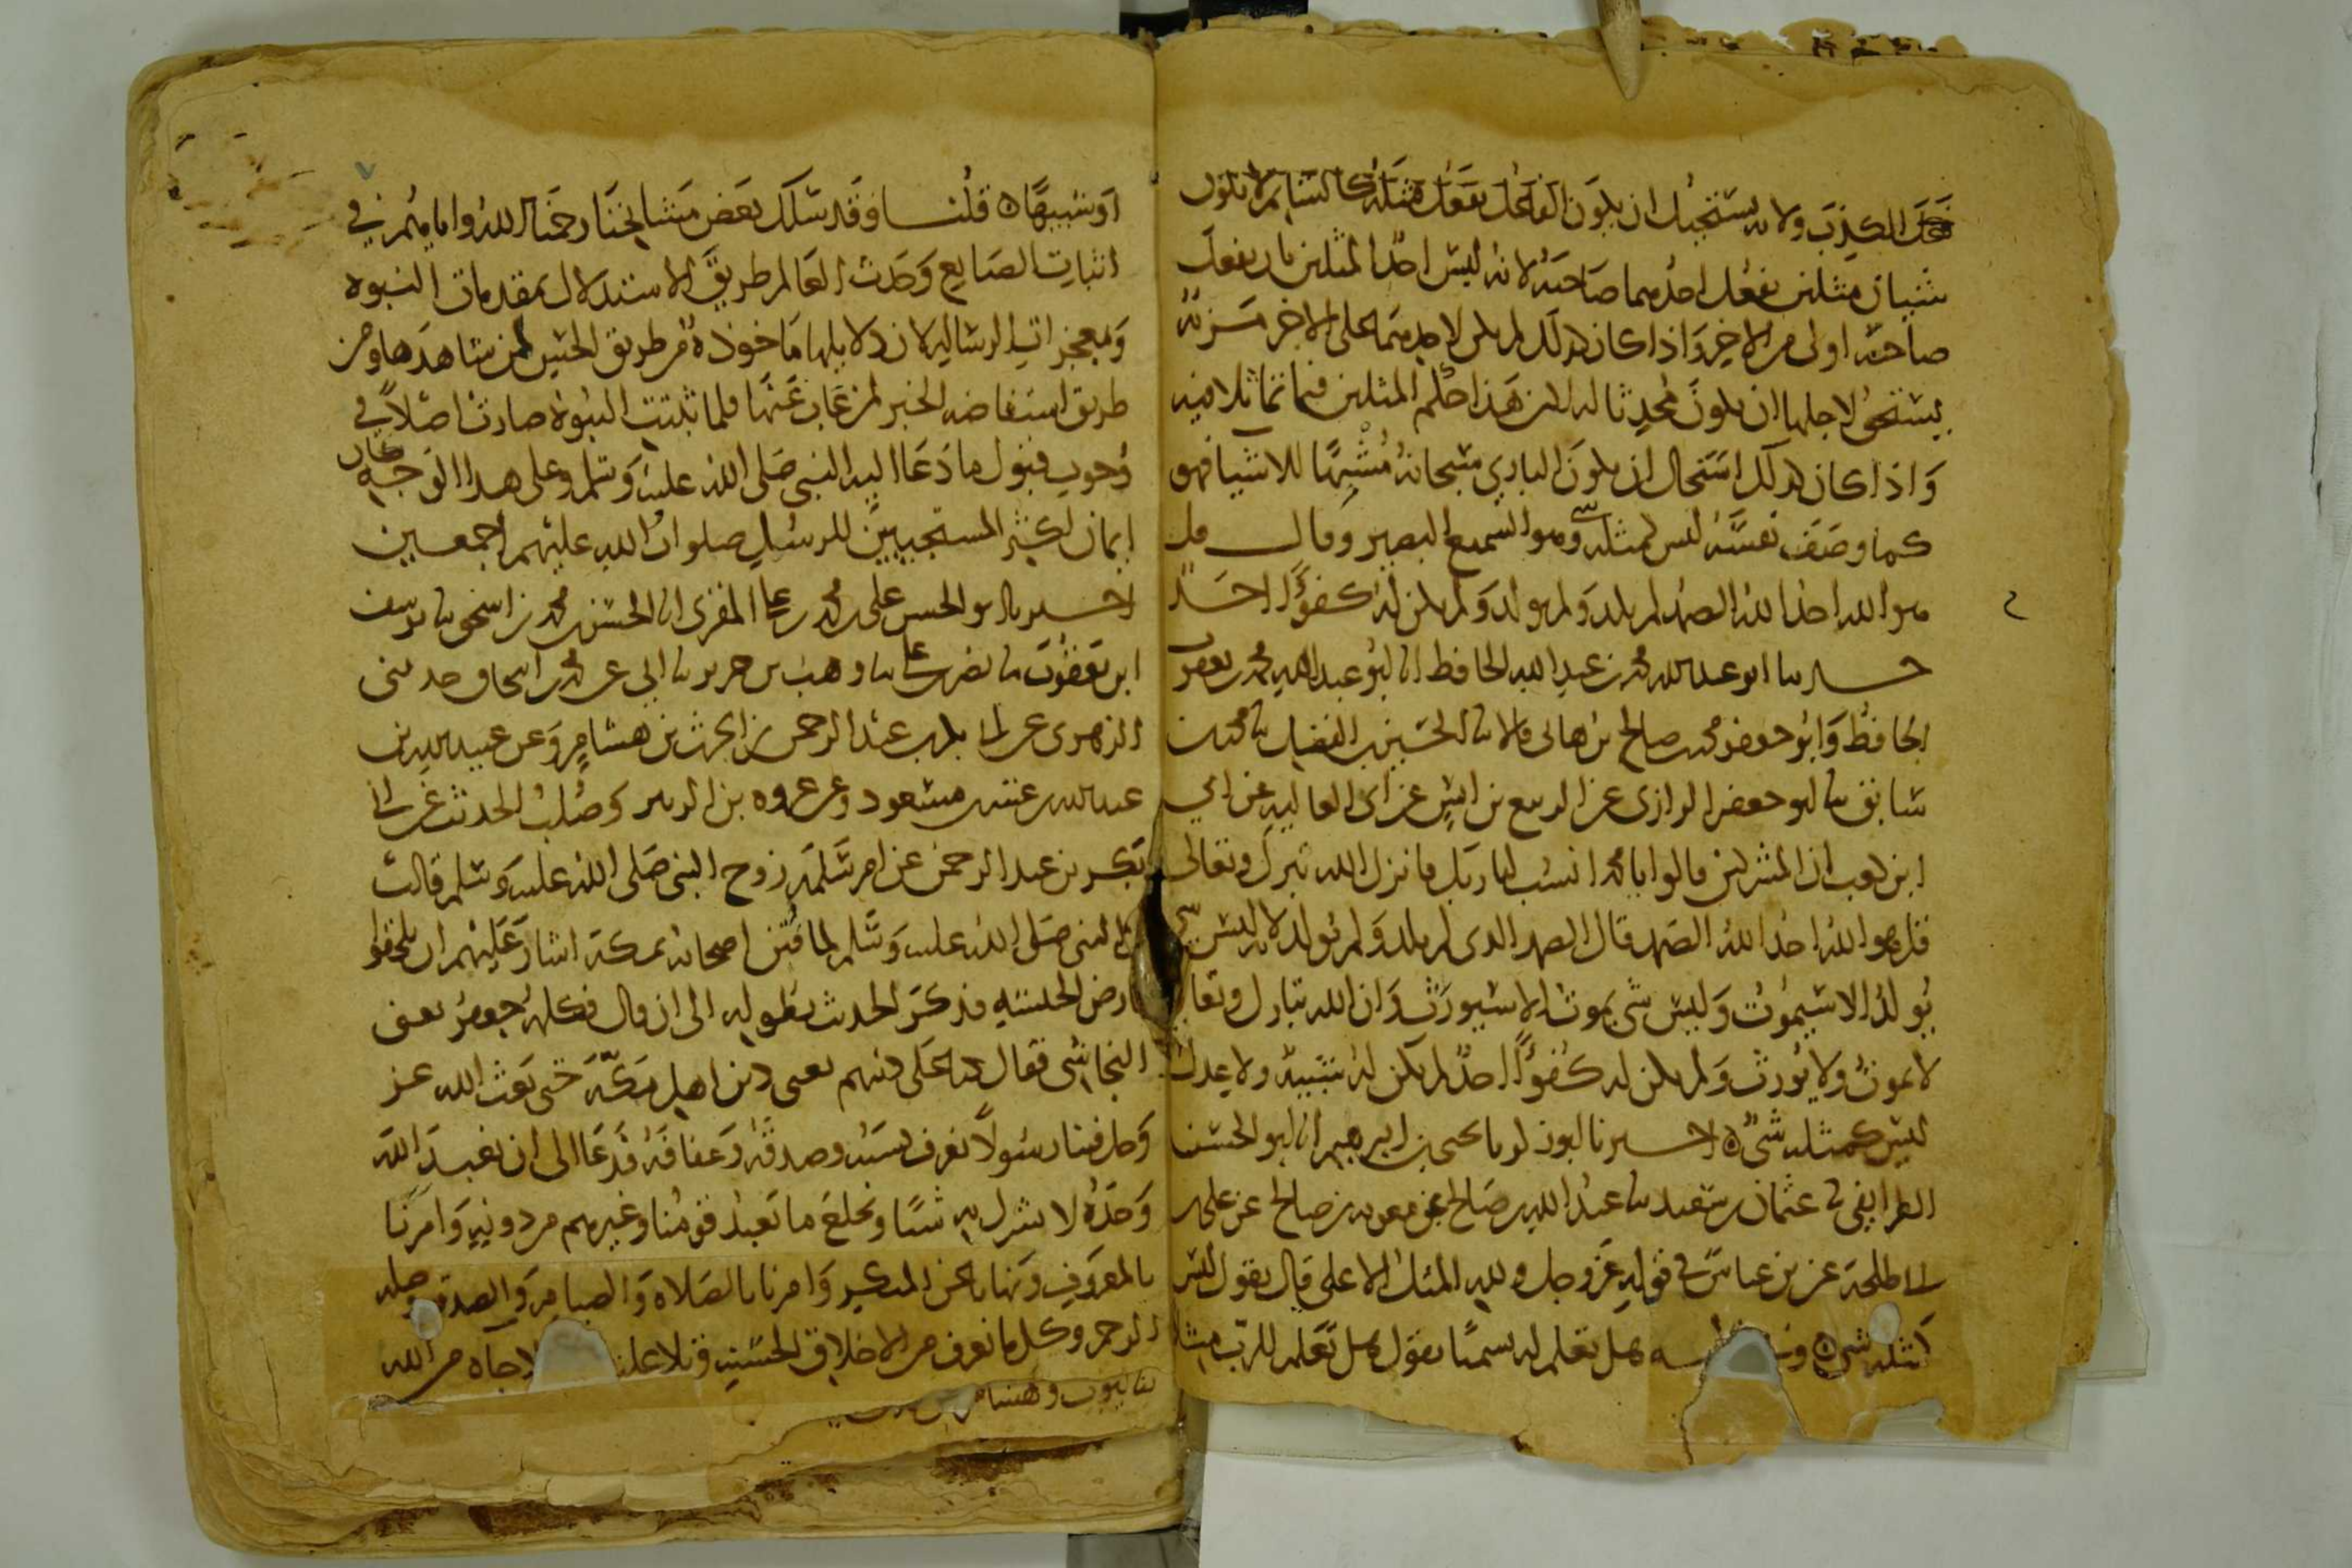 فعل الكذب ولانه يستحيل ان يكون الفاعل يفعل مثله كالشاتم لا يكون
شيئان مثلين يفعل احدهما صاحبه لانه ليس احد المثلين بان يفعل
صاحبه اولى من الاخر واذا كان كذلك لم يكن لاحدهما على الاخر مزية
يستحق لاجلها ان يكون محدثا له لان هذا حكم المثلين فيما تماثلا فيه
واذا كان كذلك استحال ان يكون الباري سبحانه مشبها للاشيا فهو
كما وصف نفسه ليس كمثله شي وهو السميع البصير وقال قل
هو الله احد الله الصمد لم يلد ولم يولد ولم يكن له كفوا احد
حدثنا ابو عبد الله محمد بن عبد الله الحافظ انا ابو عبد الله محمد بن يعقوب
الحافظ وابو جعفر محمد بن صالح بن هاني قالا نا الحسين بن الفضل نا محمد بن
سابق نا ابو جعفر الرازي عن الربيع بن انس عن ابي العاليه عن ابي
ابن كعب ان المشركين قالوا يا محمد انسب لنا ربك فانزل الله تبرك وتعالى
قل هو الله احد الله الصمد قال الصمد الذي لم يلد ولم يولد لانه ليس شي
يولد الا سيموت وليس شي يموت الا سيورث وان الله تبارك وتعالى
لا يموت ولا يورث ولم يكن له كفوا احد لم يكن له شبيه ولا عدل
ليس كمثله شي ه اخبرنا ابو زكريا يحيى بن ابرهيم انا ابو الحسن
الطرايفي نا عثمان بن سعيد نا عبد الله بن صالح عن معويه بن صالح عن علي بن
ابي طلحة عن بن عباس في قوله عز وجل ولله المثل الاعلى قال يقول ليس
كمثله شي ه وفي هل تعلم له سميا يقول هل تعلم للرب مثلا
او شبيها ه قلنا وقد سلك بعض مشايخنا رحمنا الله واياهم في
اثبات الصانع وحدث العالم طريق الاستدلال بمقدمات النبوه
ومعجزات الرساله لان دلايلها ماخوذة من طريق الحس لمن شاهدها ومن
طريق استفاضه الخبر لمن غاب عنها فلما ثبتت النبوة صارت اصلا في
وجوب قبول ما دعا اليه النبي صلى الله عليه وسلم وعلى هذا الوجه كان
ايمان اكثر المستجيبين للرسل صلوات الله عليهم اجمعين
اخبرنا ابو الحسن علي بن محمد بن علي المقرى انا الحسن بن محمد بن اسحق نا يوسف
ابن يعقوب نا نصر بن علي نا وهب بن جرير نا ابي عن محمد بن اسحاق حدثني
الزهري عن ابي بكر بن عبد الرحمن بن الحرث بن هشام وعن عبيد الله بن
عبد الله بن عتبه بن مسعود وعن عروه بن الزبير وصلب الحديث عن ابي
بكر بن عبد الرحمن عن ام سلمه زوج النبي صلى الله عليه وسلم قالت
النبي صلى الله عليه وسلم لما فتن اصحابه بمكة اشار عليهم ان يلحقوا
بارض الحبشه فذكر الحديث بطوله الى ان قال فكلمه جعفر يعني
النجاشي فقال كنا على دينهم يعني دين اهل مكة حتى بعث الله عز
وجل فينا رسولا نعرف نسبه وصدقه وعفافه فدعا الى ان نعبد الله
وحده لا نشرك به شيئا ونخلع ما نعبد قومنا وغيرهم من دونه وامرنا
بالمعروف ونهانا عن المنكر وامرنا بالصلاه والصيام والصدقه وصله
الرحم وكل ما نعرف من الاخلاق الحسنه وتلا علينا جاه من الله